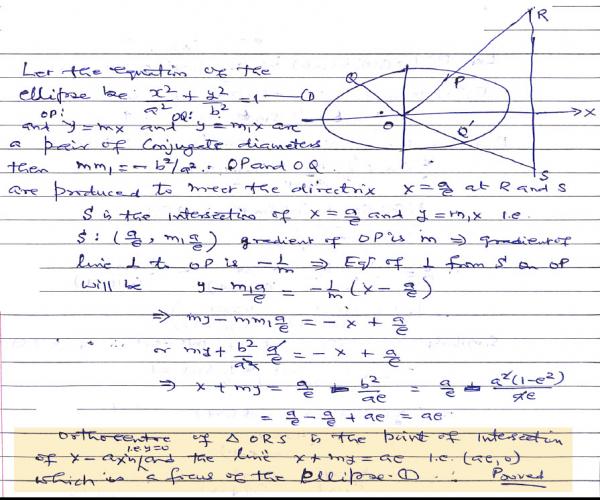 R
Let the equation of the
ellipse be x²/a² + y²/b² = 1 — ①
Q P
OP: OQ:
and y = mx and y = m₁x are
O X
a pair of Conjugate diameters
Q'
then mm₁ = - b²/a². OP and OQ
S
are produced to meet the directrix x = a/e at R and S
S is the intersection of x = a/e and y = m₁x i.e.
S: (a/e, m₁a/e) gradient of OP is m ⇒ gradient of
line ⊥ to OP is -1/m ⇒ Eqⁿ of ⊥ from S on OP
will be y - m₁a/e = -1/m (x - a/e)
⇒ my - mm₁a/e = - x + a/e
or my + b²/a² a/e = - x + a/e
⇒ x + my = a/e - b²/ae = a/e - a²(1-e²)/ae
= a/e - a/e + ae = ae
Orthocentre of △ ORS is the point of intersection
i.e. y=0
of x-axis and the line x + my = ae i.e. (ae, 0)
which is a focus of the ellipse ① ∴ Proved